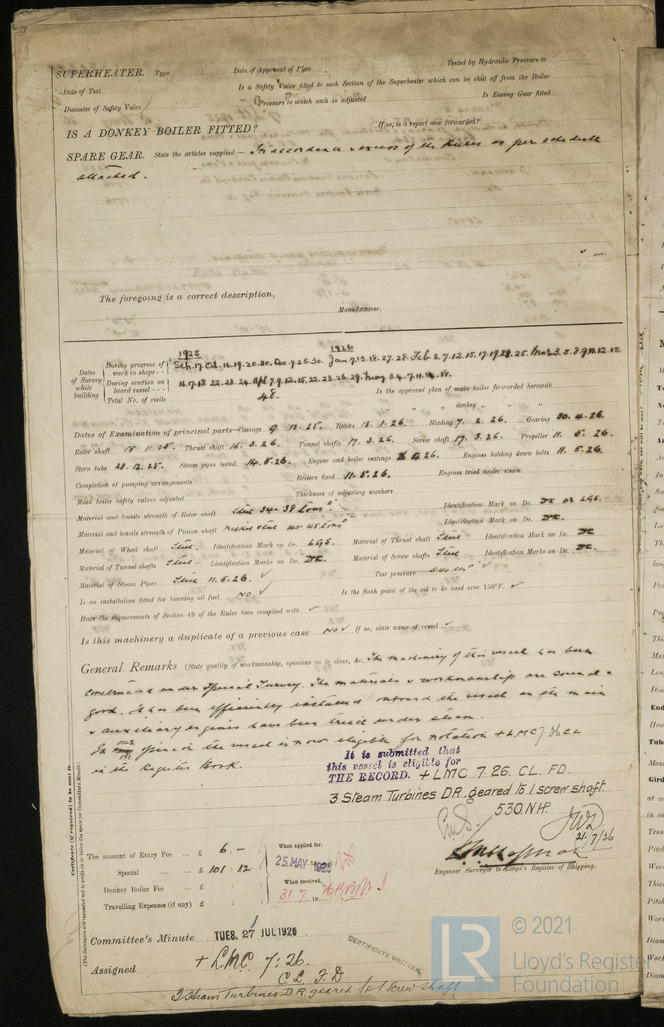 SUPERHEATER. Type Date of Approval of Plan Tested by Hydraulic Pressure to
Date of Test Is a Safety Valve fitted to each Section of the Superheater which can be shut off from the Boiler
Diameter of Safety Valve Pressure to which each is adjusted Is Easing Gear fitted
IS A DONKEY BOILER FITTED? If so, is a report now forwarded?
SPARE GEAR. State the articles supplied:— In accordance + excess of the Rules as per schedule
attached.
The foregoing is a correct description,
Manufacturer.
1925 1926
Dates of Survey while building
During progress of work in shops - - Sep. 17 Oct. 16.19.20.30. Dec. 9.23.30. Jan 7.13.18.27.28. Feb 2.7.12.15.17.19.24.25. Mar 3.5.8.9.11.12.15.
During erection on board vessel - - - 16.17.18.22.23.24. Apl 7.9.12.15.22.23.26.29. May 3.4.7.11.14.18.
Total No. of visits 48. Is the approved plan of main boiler forwarded herewith
" " " donkey " " "
Dates of Examination of principal parts—Casings 9.12.25. Rotors 13.1.26. Blading 7.2.26. Gearing 30.4.26.
Rotor shaft 18.11.25. Thrust shaft 16.3.26. Tunnel shafts 17.3.26. Screw shaft 17.3.26. Propeller 11.5.26.
Stern tube 23.12.25. Steam pipes tested 14.5.26. Engine and boiler seatings 26. Engines holding down bolts 11.5.26.
Completion of pumping arrangements Boilers fixed 11.5.26. Engines tried under steam
Main boiler safety valves adjusted Thickness of adjusting washers
Material and tensile strength of Rotor shaft Steel 34-38 tons Identification Mark on Do. DC or LGS.
Material and tensile strength of Pinion shaft Nickel steel 40-45 tons Identification Mark on Do. DC.
Material of Wheel shaft Steel. Identification Mark on Do. LGS. Material of Thrust shaft Steel Identification Mark on Do. DC
Material of Tunnel shafts Steel. Identification Marks on Do. DC. Material of Screw shafts Steel Identification Marks on Do. DC.
Material of Steam Pipes Steel 11.5.26. ✓ Test pressure 540 lbs ✓
Is an installation fitted for burning oil fuel No. ✓ Is the flash point of the oil to be used over 150°F. ✓
Have the requirements of Section 49 of the Rules been complied with ✓
Is this machinery a duplicate of a previous case No ✓ If so, state name of vessel ✓
General Remarks (State quality of workmanship, opinions as to class, &c. The machinery of this vessel has been
constructed under Special Survey. The materials & workmanship are sound &
good. It has been efficiently installed onboard the vessel and the main
& auxiliary engines have been tried under steam.
In our opinion the vessel is now eligible for notation + LMC 7.26 CL
in the Register Book.
It is submitted that
this vessel is eligible for
THE RECORD. + LMC 7.26. CL. FD.
3 Steam Turbines DR geared to 1 screw shaft.
530. NHP.
21/7/26
The amount of Entry Fee ... £ 6 : - When applied for,
Special ... ... £ 101 : 12 25. MAY 1926
Donkey Boiler Fee ... £ When received,
Travelling Expenses (if any) £ 31.7.19
Engineer Surveyor to Lloyd's Register of Shipping.
Committee's Minute TUES. 27 JUL 1926
Assigned + LMC 7.26.
CL. F.D
CERTIFICATE WRITTEN.
3 Steam Turbines DR geared to 1 screw shaft
LR
© 2021
Lloyd's Register
Foundation